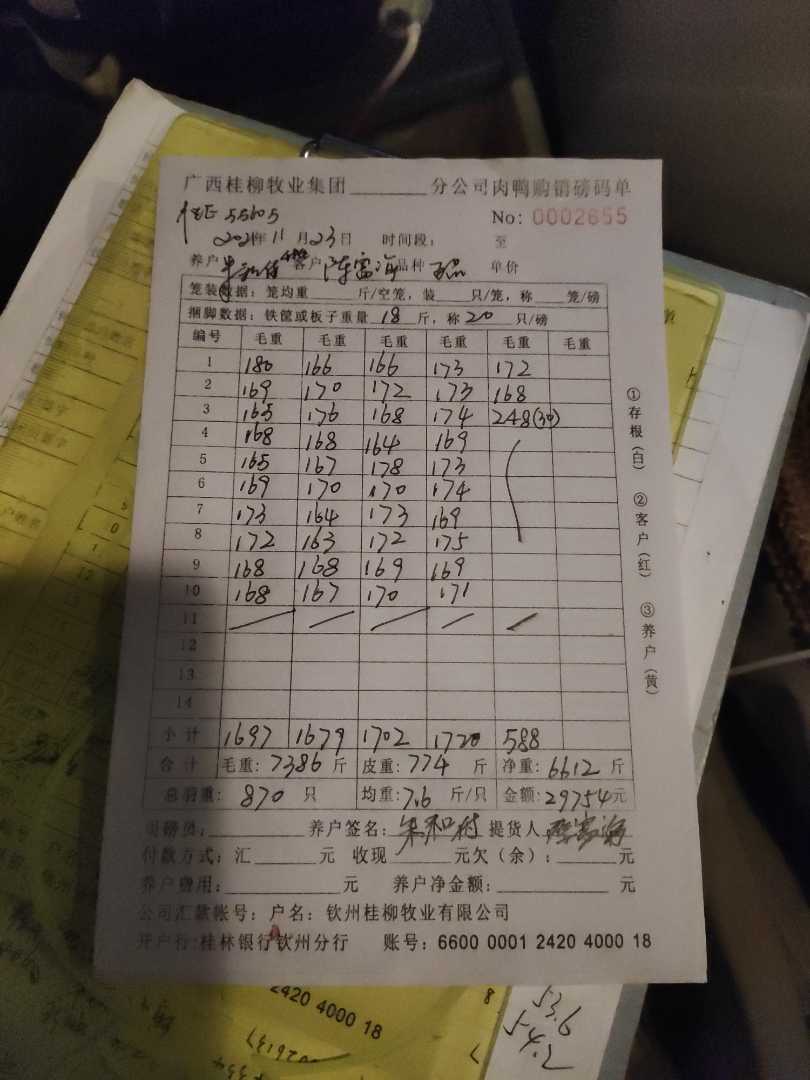 广西桂柳牧业集团________分公司肉鸭购销磅码单
No: 0002655
55605
2021年11月23日 时间段: 至
养户 客户 陈富海 品种 单价
笼装数据: 笼均重____斤/空笼, 装___只/笼, 称___笼/磅
捆脚数据: 铁筐或板子重量 18 斤, 称 20 只/磅
编号 毛重 毛重 毛重 毛重 毛重 毛重
1 180 166 166 173 172
2 169 170 172 173 168
3 165 176 168 174 248(30)
4 168 168 164 169
5 165 167 178 173
6 169 170 170 174
7 173 164 173 169
8 172 163 172 175
9 168 168 169 169
10 168 167 170 171
11
12
13
14
小计 1697 1679 1702 1720 588
合计 毛重: 7386 斤 皮重: 774 斤 净重: 6612 斤
总羽重: 870 只 均重: 7.6 斤/只 金额: 29754元
司磅员: 养户签名: 朱和村 提货人 陈富海
付款方式: 汇______元 收现______元欠(余): ______元
养户费用: __________元 养户净金额: __________元
公司汇款帐号: 户名: 钦州桂柳牧业有限公司
开户行: 桂林银行钦州分行 账号: 6600 0001 2420 4000 18
①存根(白) ②客户(红) ③养户(黄)
2420 4000 18
53.6
54.2